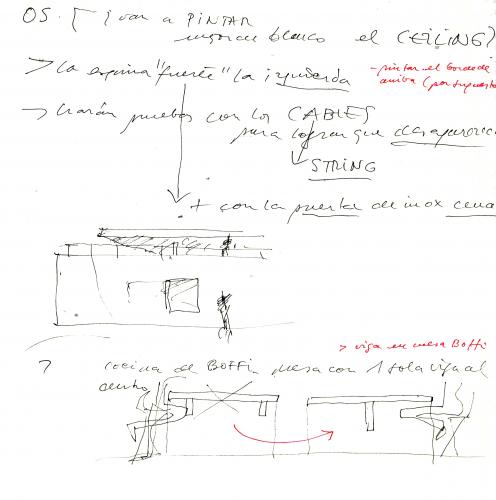 OS. ¿ van a PINTAR
blanco el CEILING?
> la esquina "fuerte" la izquierda
- pintar el borde de
arriba (por supuesto
→ harán pruebas con los CABLES
para lograr que desaparezca
STRING
+ con la puerta de inox
> viga en mesa Boffi
? cocina de BOFFI mesa con 1 sola viga al
centro